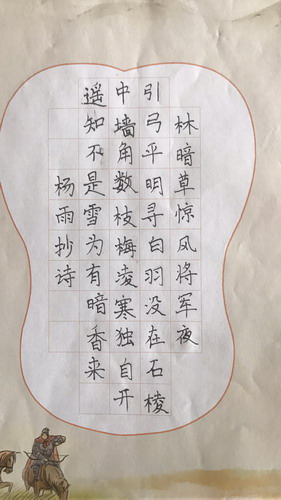 林暗草惊风将军夜
引弓平明寻白羽没在石棱
中墙角数枝梅凌寒独自开
遥知不是雪为有暗香来
杨雨抄诗